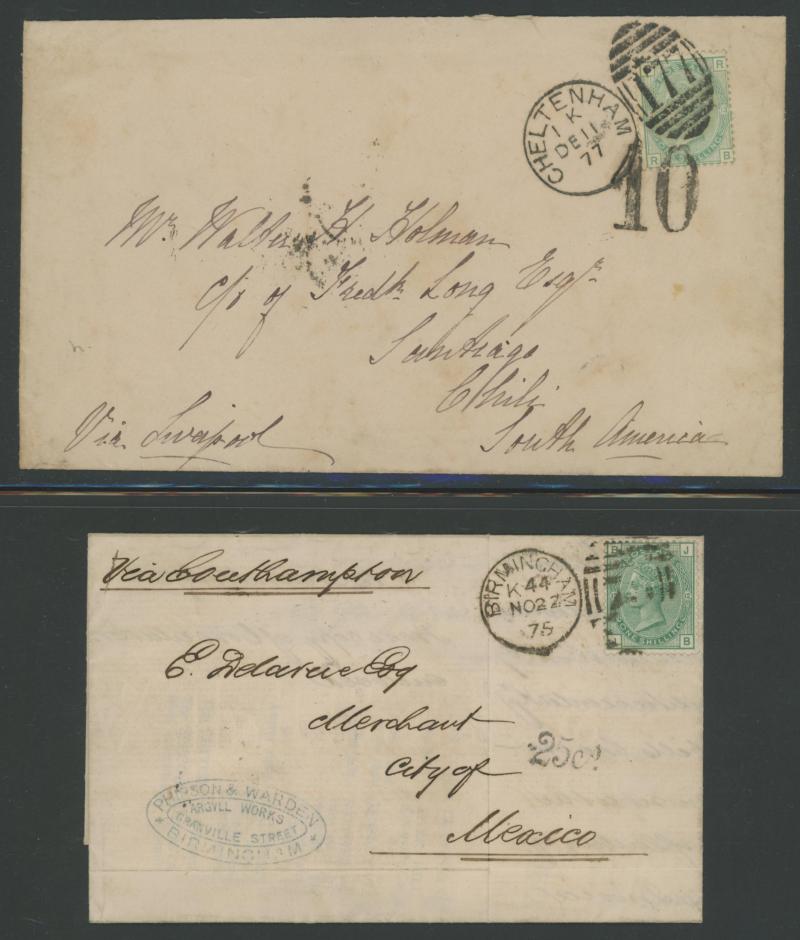 CHELTENHAM
1 K
DE 11
77
177
R
R B
10
Mr. Walter H Holman
c/o of Fredk Long Esqr
Santiago
Chili
Via Liverpool
South America
Via Southampton
BIRMINGHAM
K 44
NO 27
75
B J
ONE SHILLING
J B
E. Delarue Esq
Merchant
25cs
City of
Mexico
& WARDEN
ARGYLL WORKS
GRANVILLE STREET
BIRMINGHAM